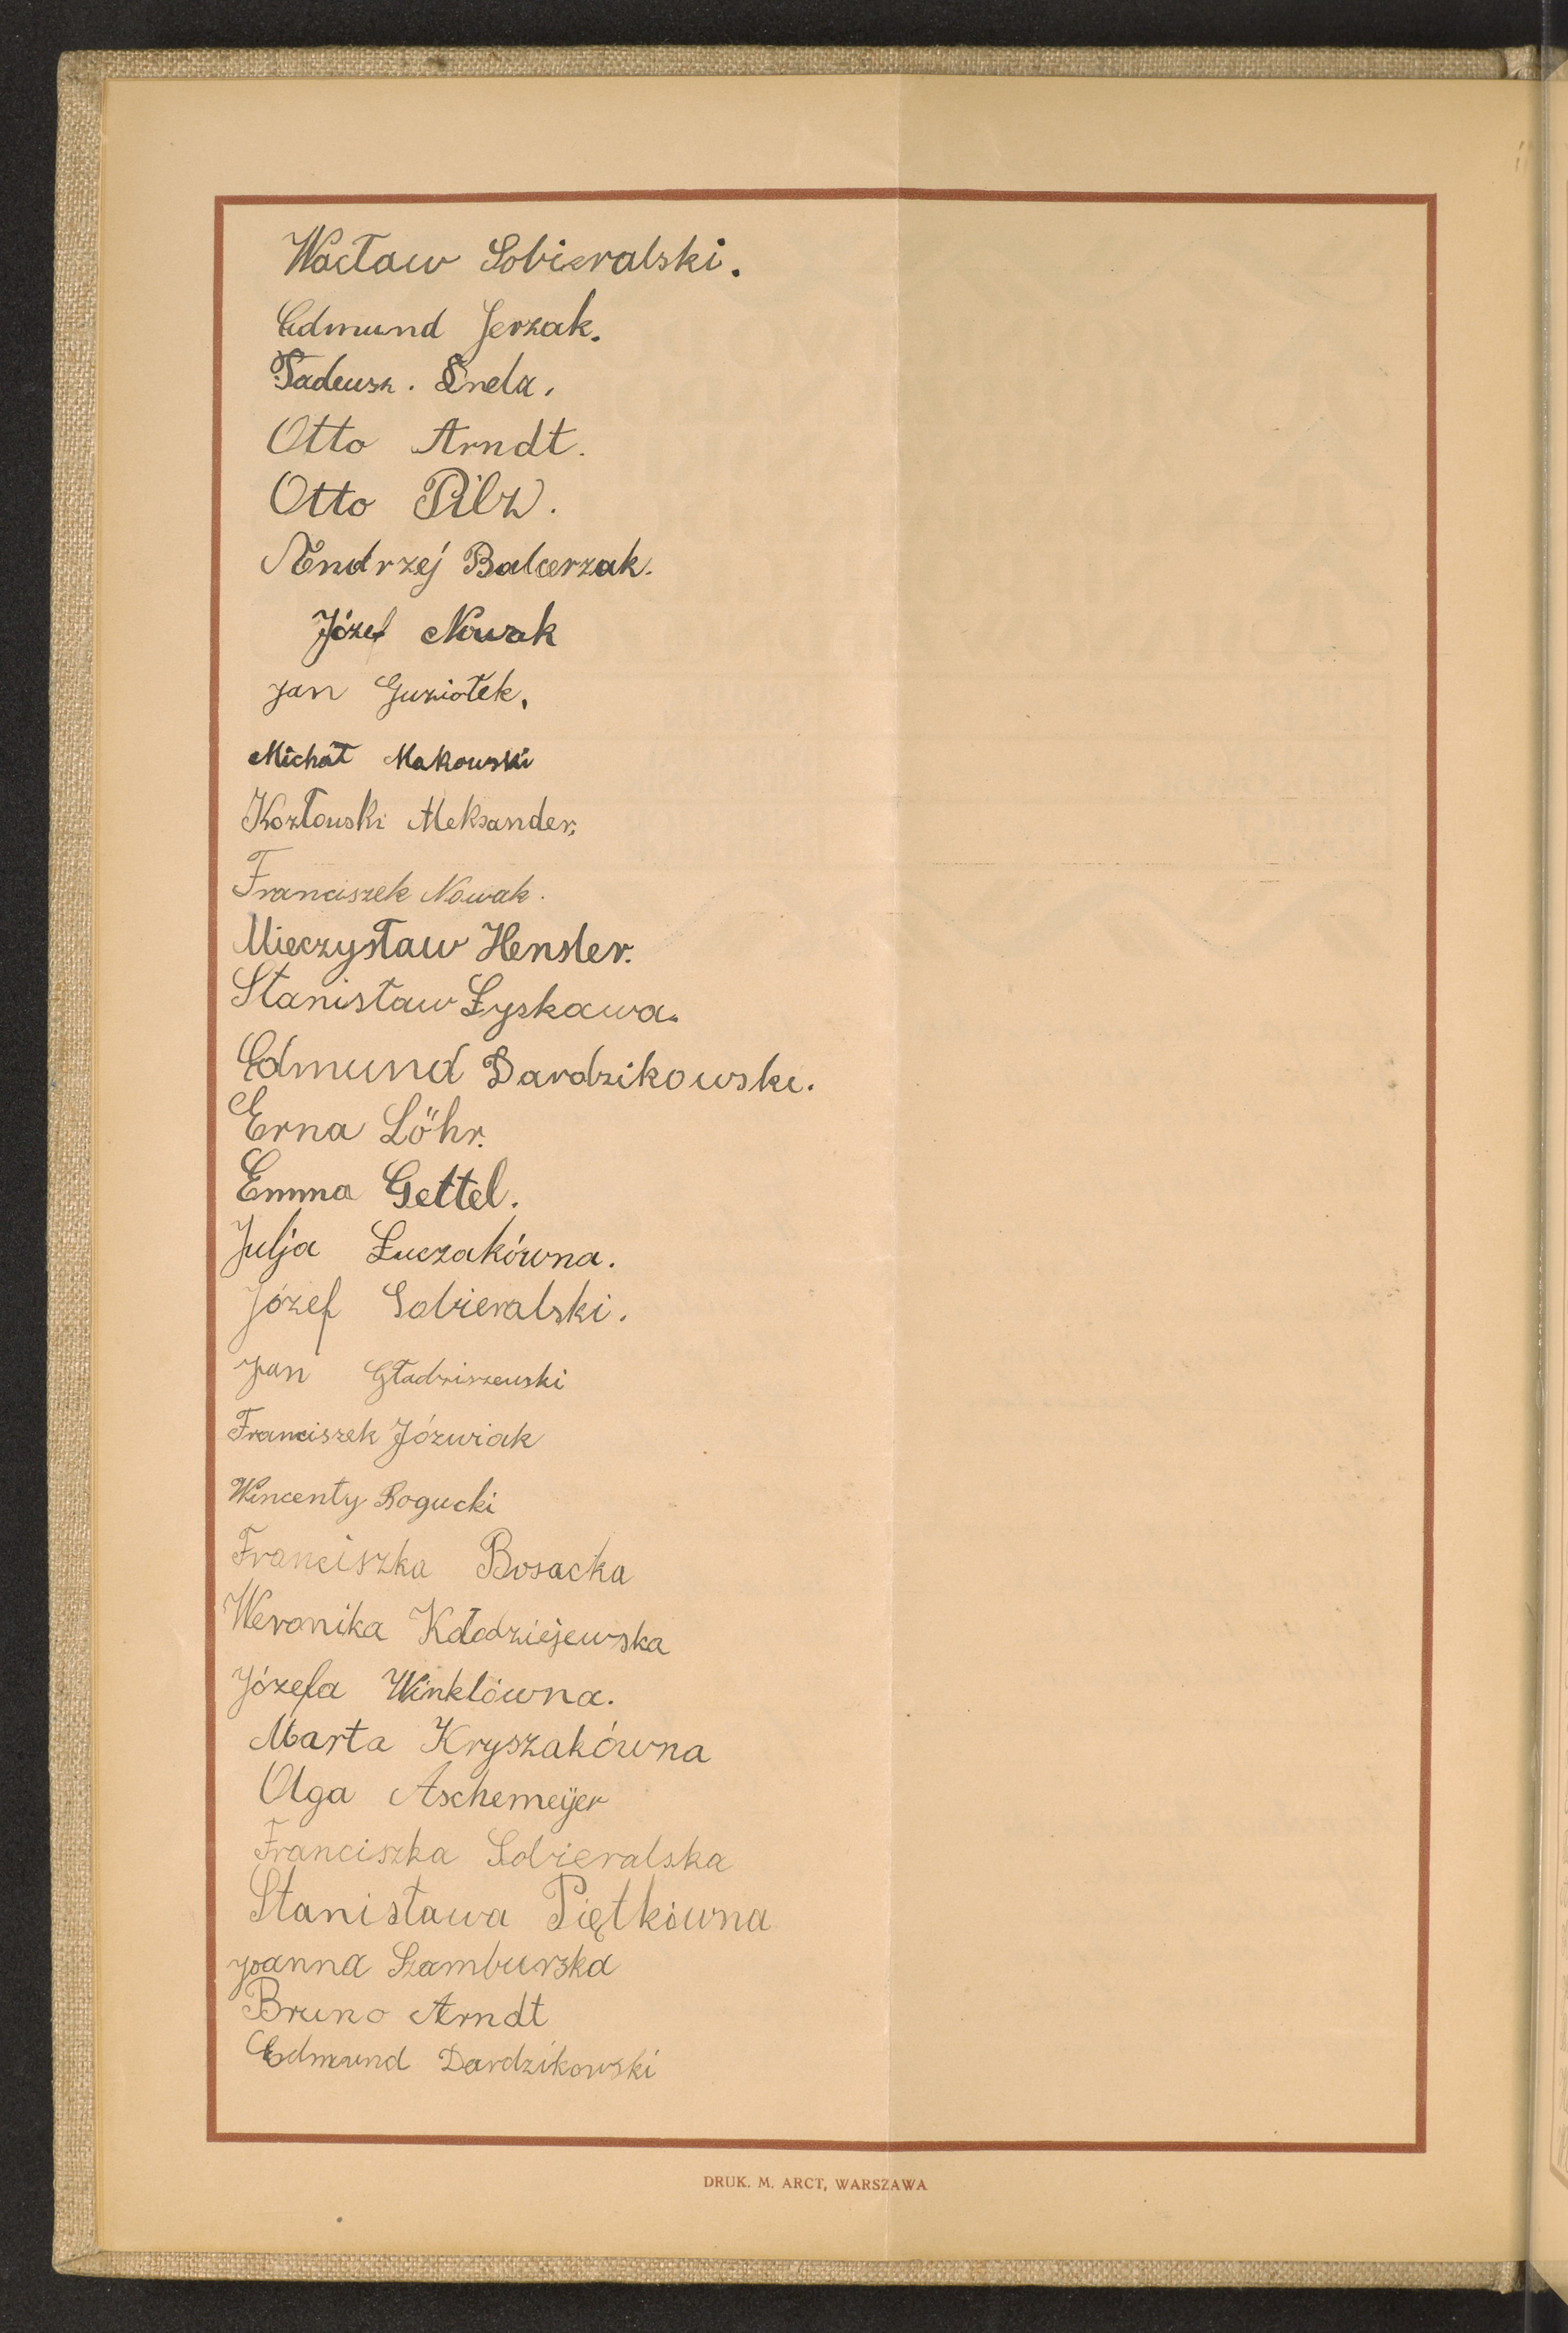 Wacław Sobieralski.
Edmund Jerzak.
Tadeusz. Śnela.
Otto Arndt.
Otto Pilz.
Andrzej Balcerzak.
Józef Nowak
Jan Guziołek.
Michał Makowski
Kozłowski Aleksander.
Franciszek Nowak.
Mieczysław Hensler.
Stanisław Łyskawa.
Edmund Dardzikowski.
Erna Löhr.
Emma Gettel.
Julja Łuczakówna.
Józef Sobieralski.
Jan Gładziszewski
Franciszek Józwiak
Wincenty Rogucki
Franciszka Bosacka
Weronika Kołodziejewska
Józefa Winklówna.
Marta Kryszakówna
Olga Aschemeÿer
Franciszka Sobieralska
Stanisława Piętkówna
Joanna Szamburska
Bruno Arndt
Edmund Dardzikowski
DRUK. M. ARCT, WARSZAWA